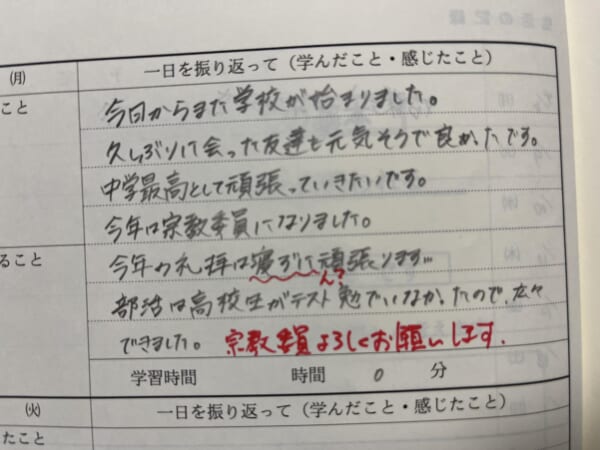 (月)
一日を振り返って(学んだこと・感じたこと)
こと
今日からまた学校が始まりました。
久しぶりに会った友達も元気そうで良かったです。
中学最高として頑張っていきたいです。
今年は宗教委員になりました。
ること
今年の礼拝は寝ずに頑張ります…
ん?
部活は高校生がテスト勉でいなかったので、広々
できました。 宗教委員よろしくお願いします.
学習時間 時間 0 分
(火)
一日を振り返って(学んだこと・感じたこと)
たこと